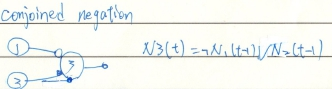 conjoined negation
1
N3(t) = ¬N1(t-1) ∨ N2(t-1)
3
2